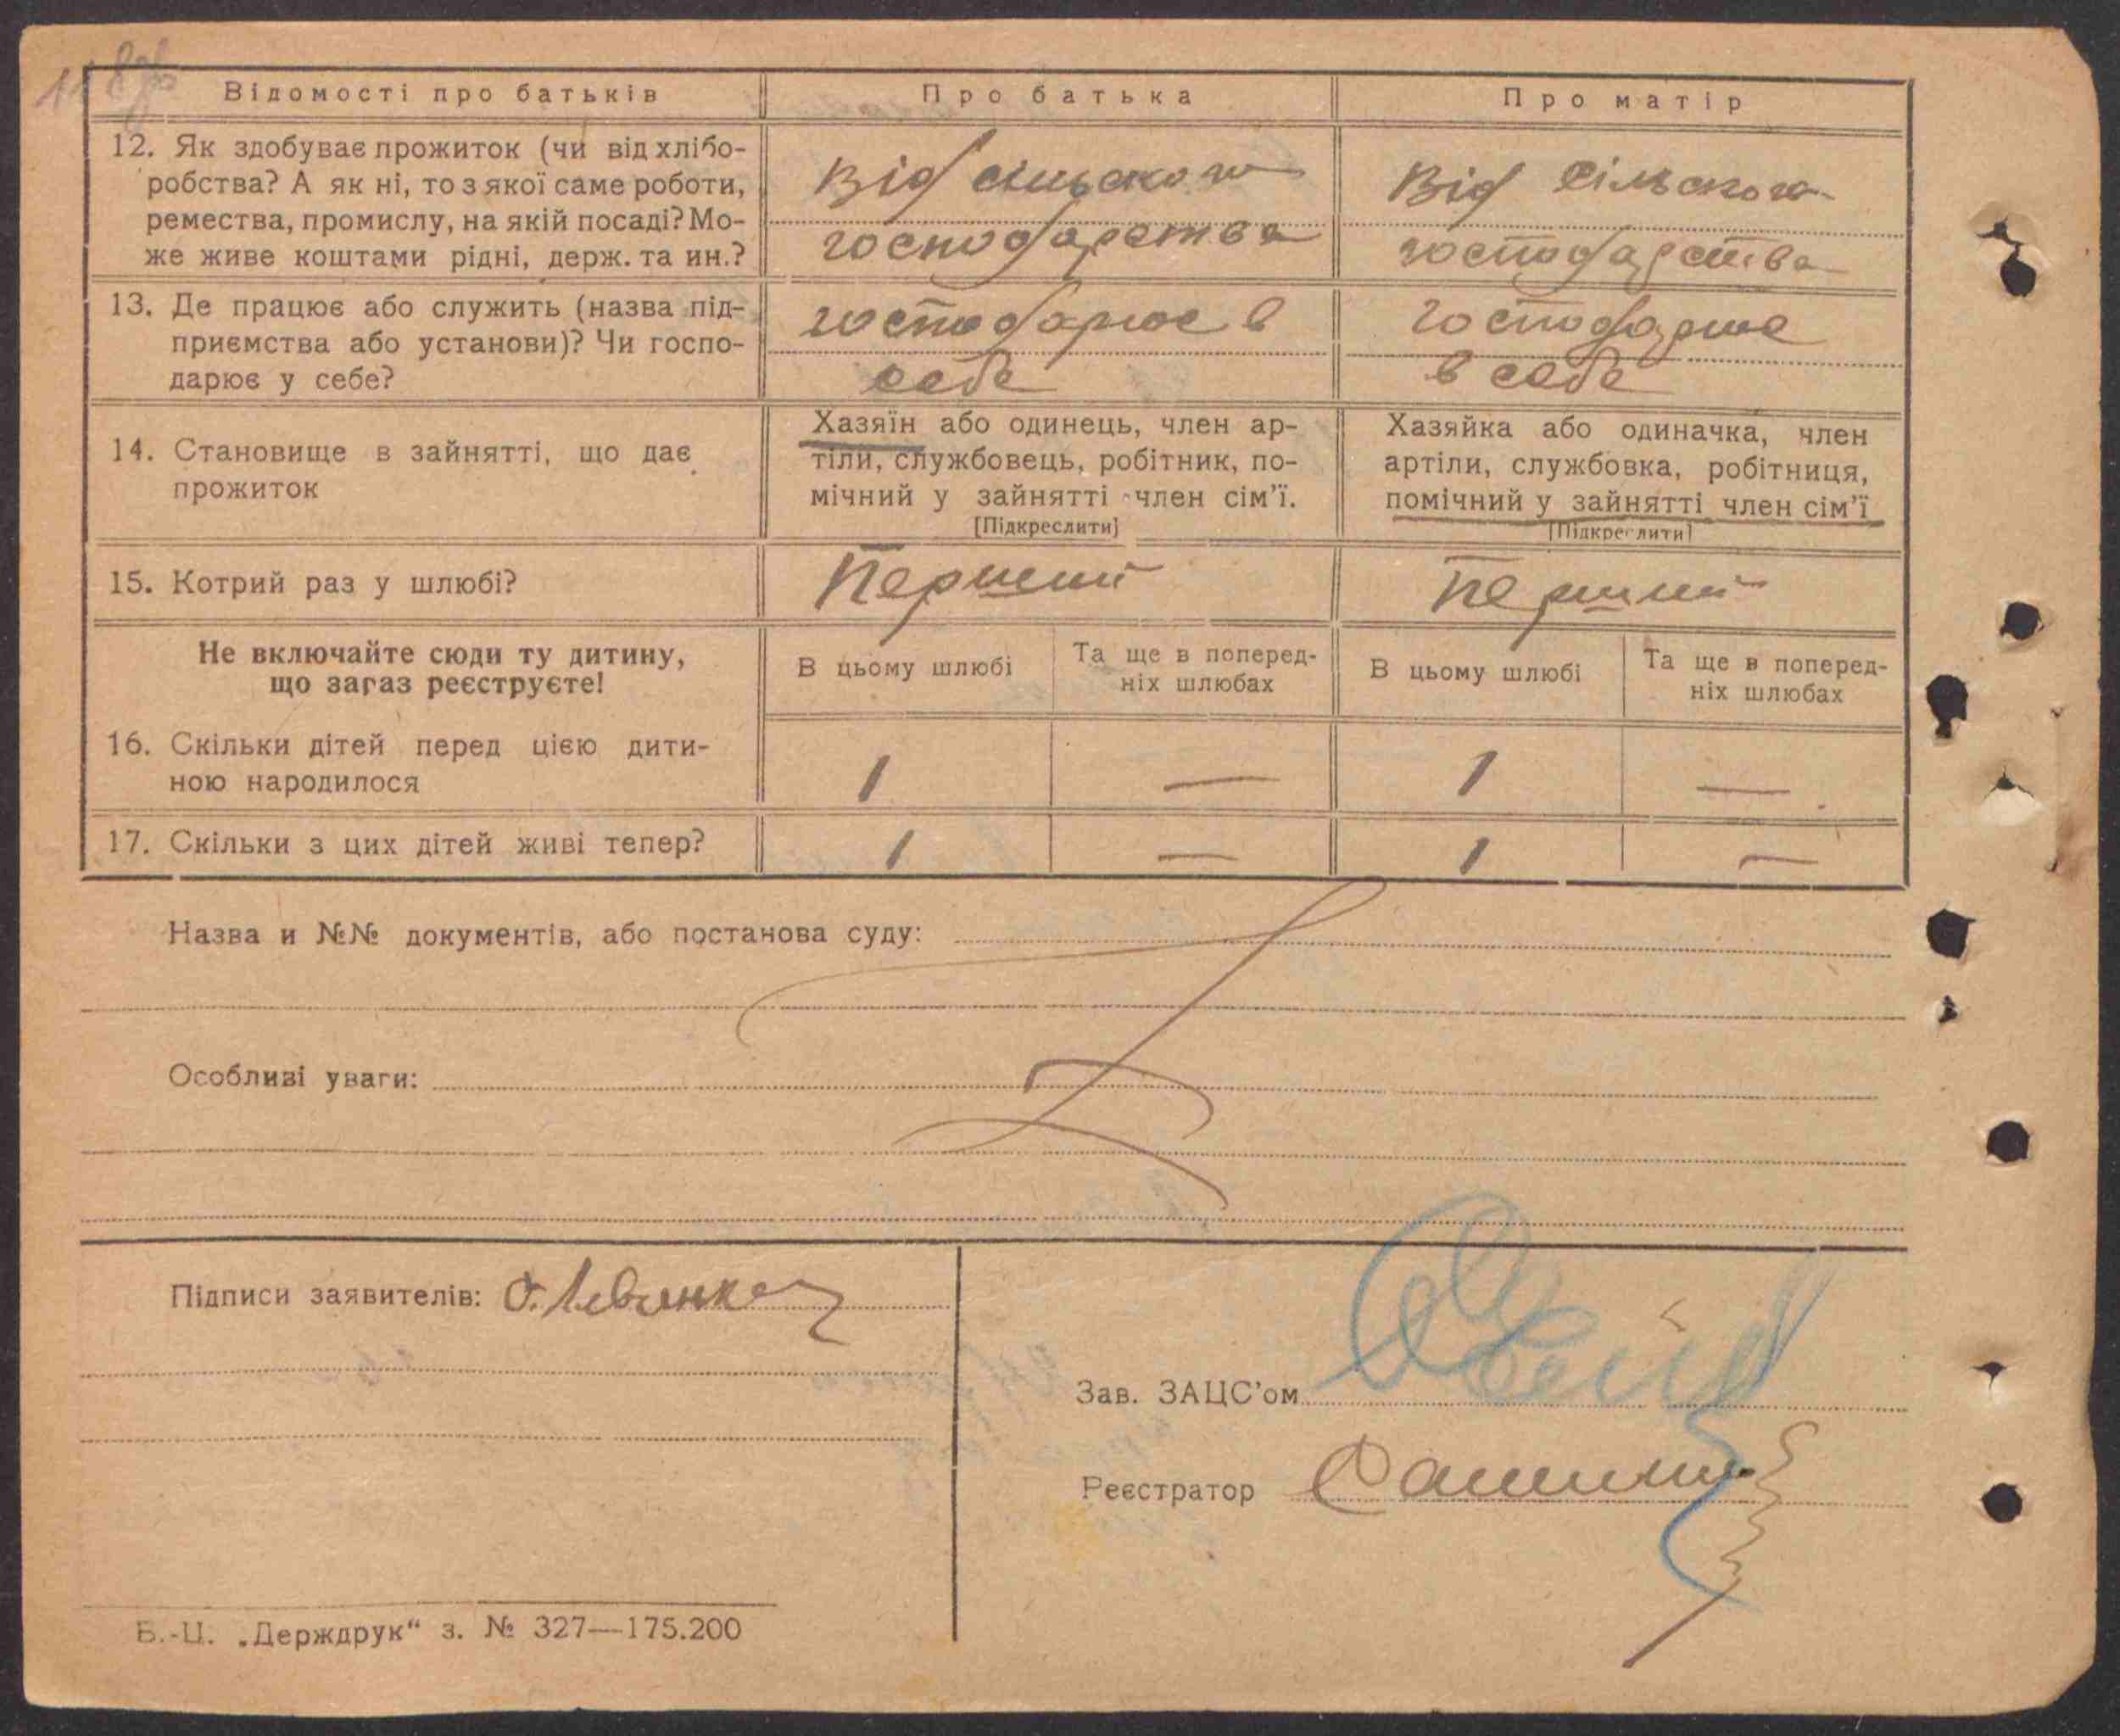 Відомості про батьків
Про батька
Про матір
12. Як здобуває прожиток (чи від хлібо-
робства? А як ні, то з якої саме роботи,
ремества, промислу, на якій посаді? Мо-
же живе коштами рідні, держ. та ин.?
Від сільского
господарства
Від сільского
господарства
13. Де працює або служить (назва під-
приємства або установи)? Чи госпо-
дарює у себе?
господарює в
себе
господарює
в себе
14. Становище в зайнятті, що дає
прожиток
Хазяїн або одинець, член ар-
тіли, службовець, робітник, по-
мічний у зайнятті член сім'ї.
[Підкреслити]
Хазяйка або одиначка, член
артіли, службовка, робітниця,
помічний у зайнятті член сім'ї
[Підкреслити]
15. Котрий раз у шлюбі?
Перший
Перший
Не включайте сюди ту дитину,
що зараз реєструєте!
В цьому шлюбі
Та ще в поперед-
ніх шлюбах
В цьому шлюбі
Та ще в поперед-
ніх шлюбах
16. Скільки дітей перед цією дити-
ною народилося
1 — 1 —
17. Скільки з цих дітей живі тепер?
1 — 1 —
Назва и №№ документів, або постанова суду:
Особливі уваги:
Підписи заявителів:
Зав. ЗАЦС'ом
Реєстратор
Б.-Ц. „Держдрук“ з. № 327—175.200